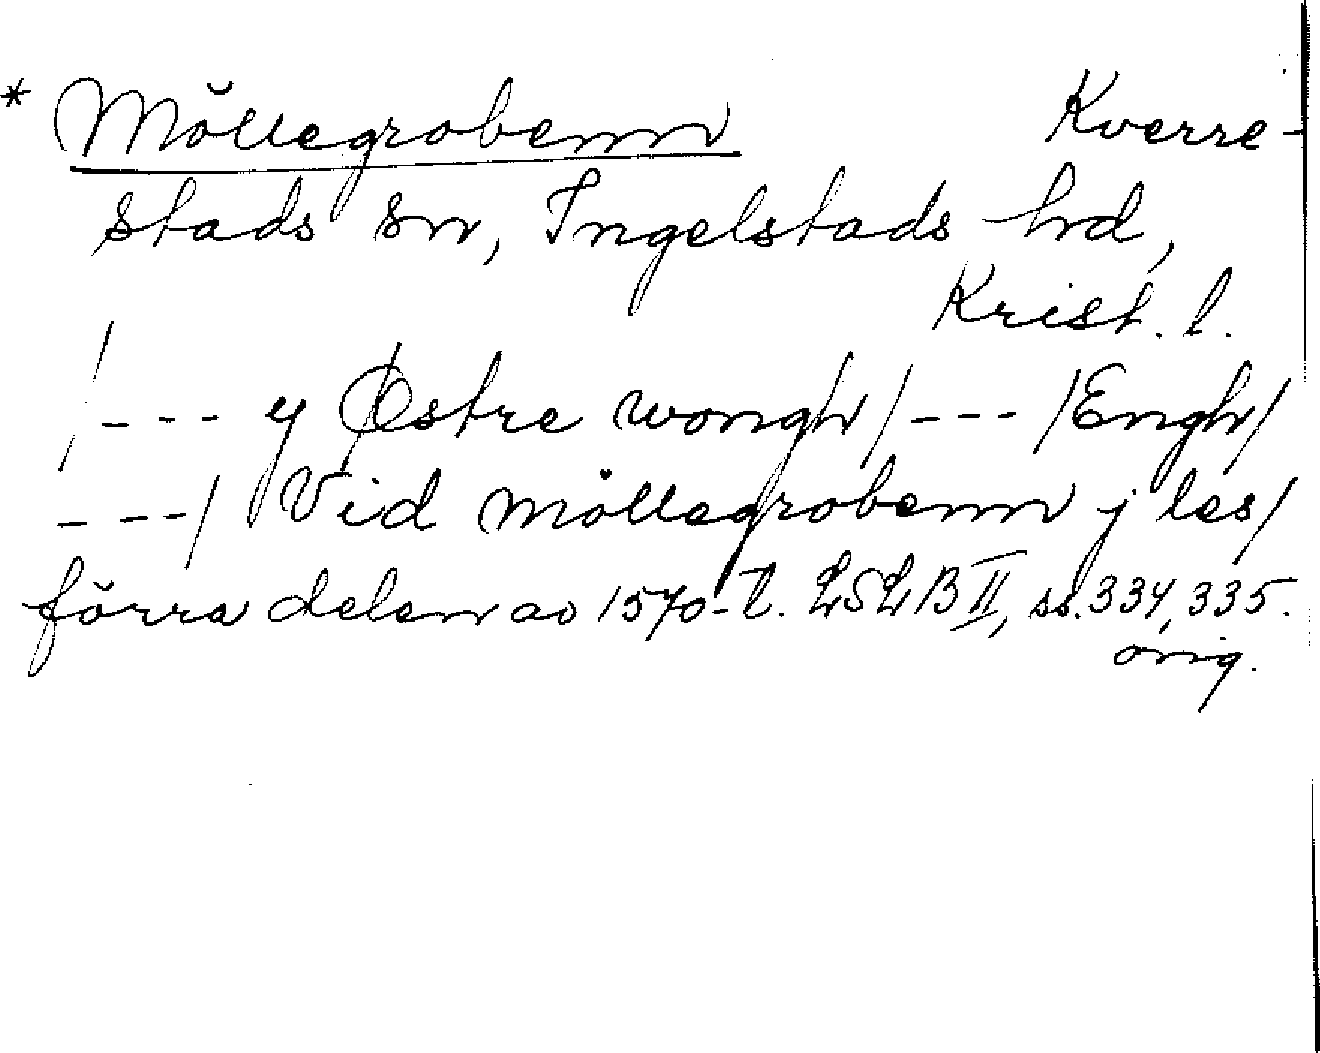 * Möllegrobenn Kverre-
stads sn, Ingelstads hd,
Krist. l.
/--- y Østre wongh/--- /Engh/
---/ Vid möllegrobenn j les/
förra delen av 1570-t. LSLB II, ss. 334, 335.
orig.